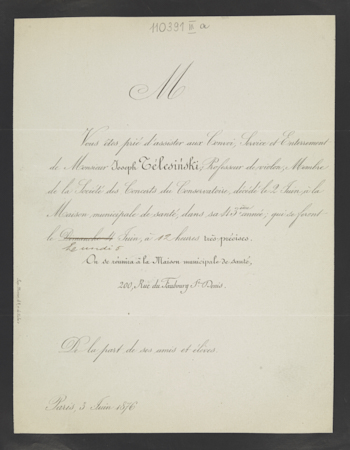 110391 III a
M
Vous êtes prié d'assister aux Convoi, Service et Enterrement
de Monsieur Joseph Télésiński, Professeur de violon, Membre
de la Société des Concerts du Conservatoire, décédé le 2 Juin, à la
Maison municipale de santé, dans sa ème année; qui se feront
le Dimanche 4 Juin, à heures très-précises.
Lundi 5
On se réunira à la Maison municipale de santé,
200, Rue du Faubourg St Denis.
De la part de ses amis et élèves.
Paris, 3 Juin 1876